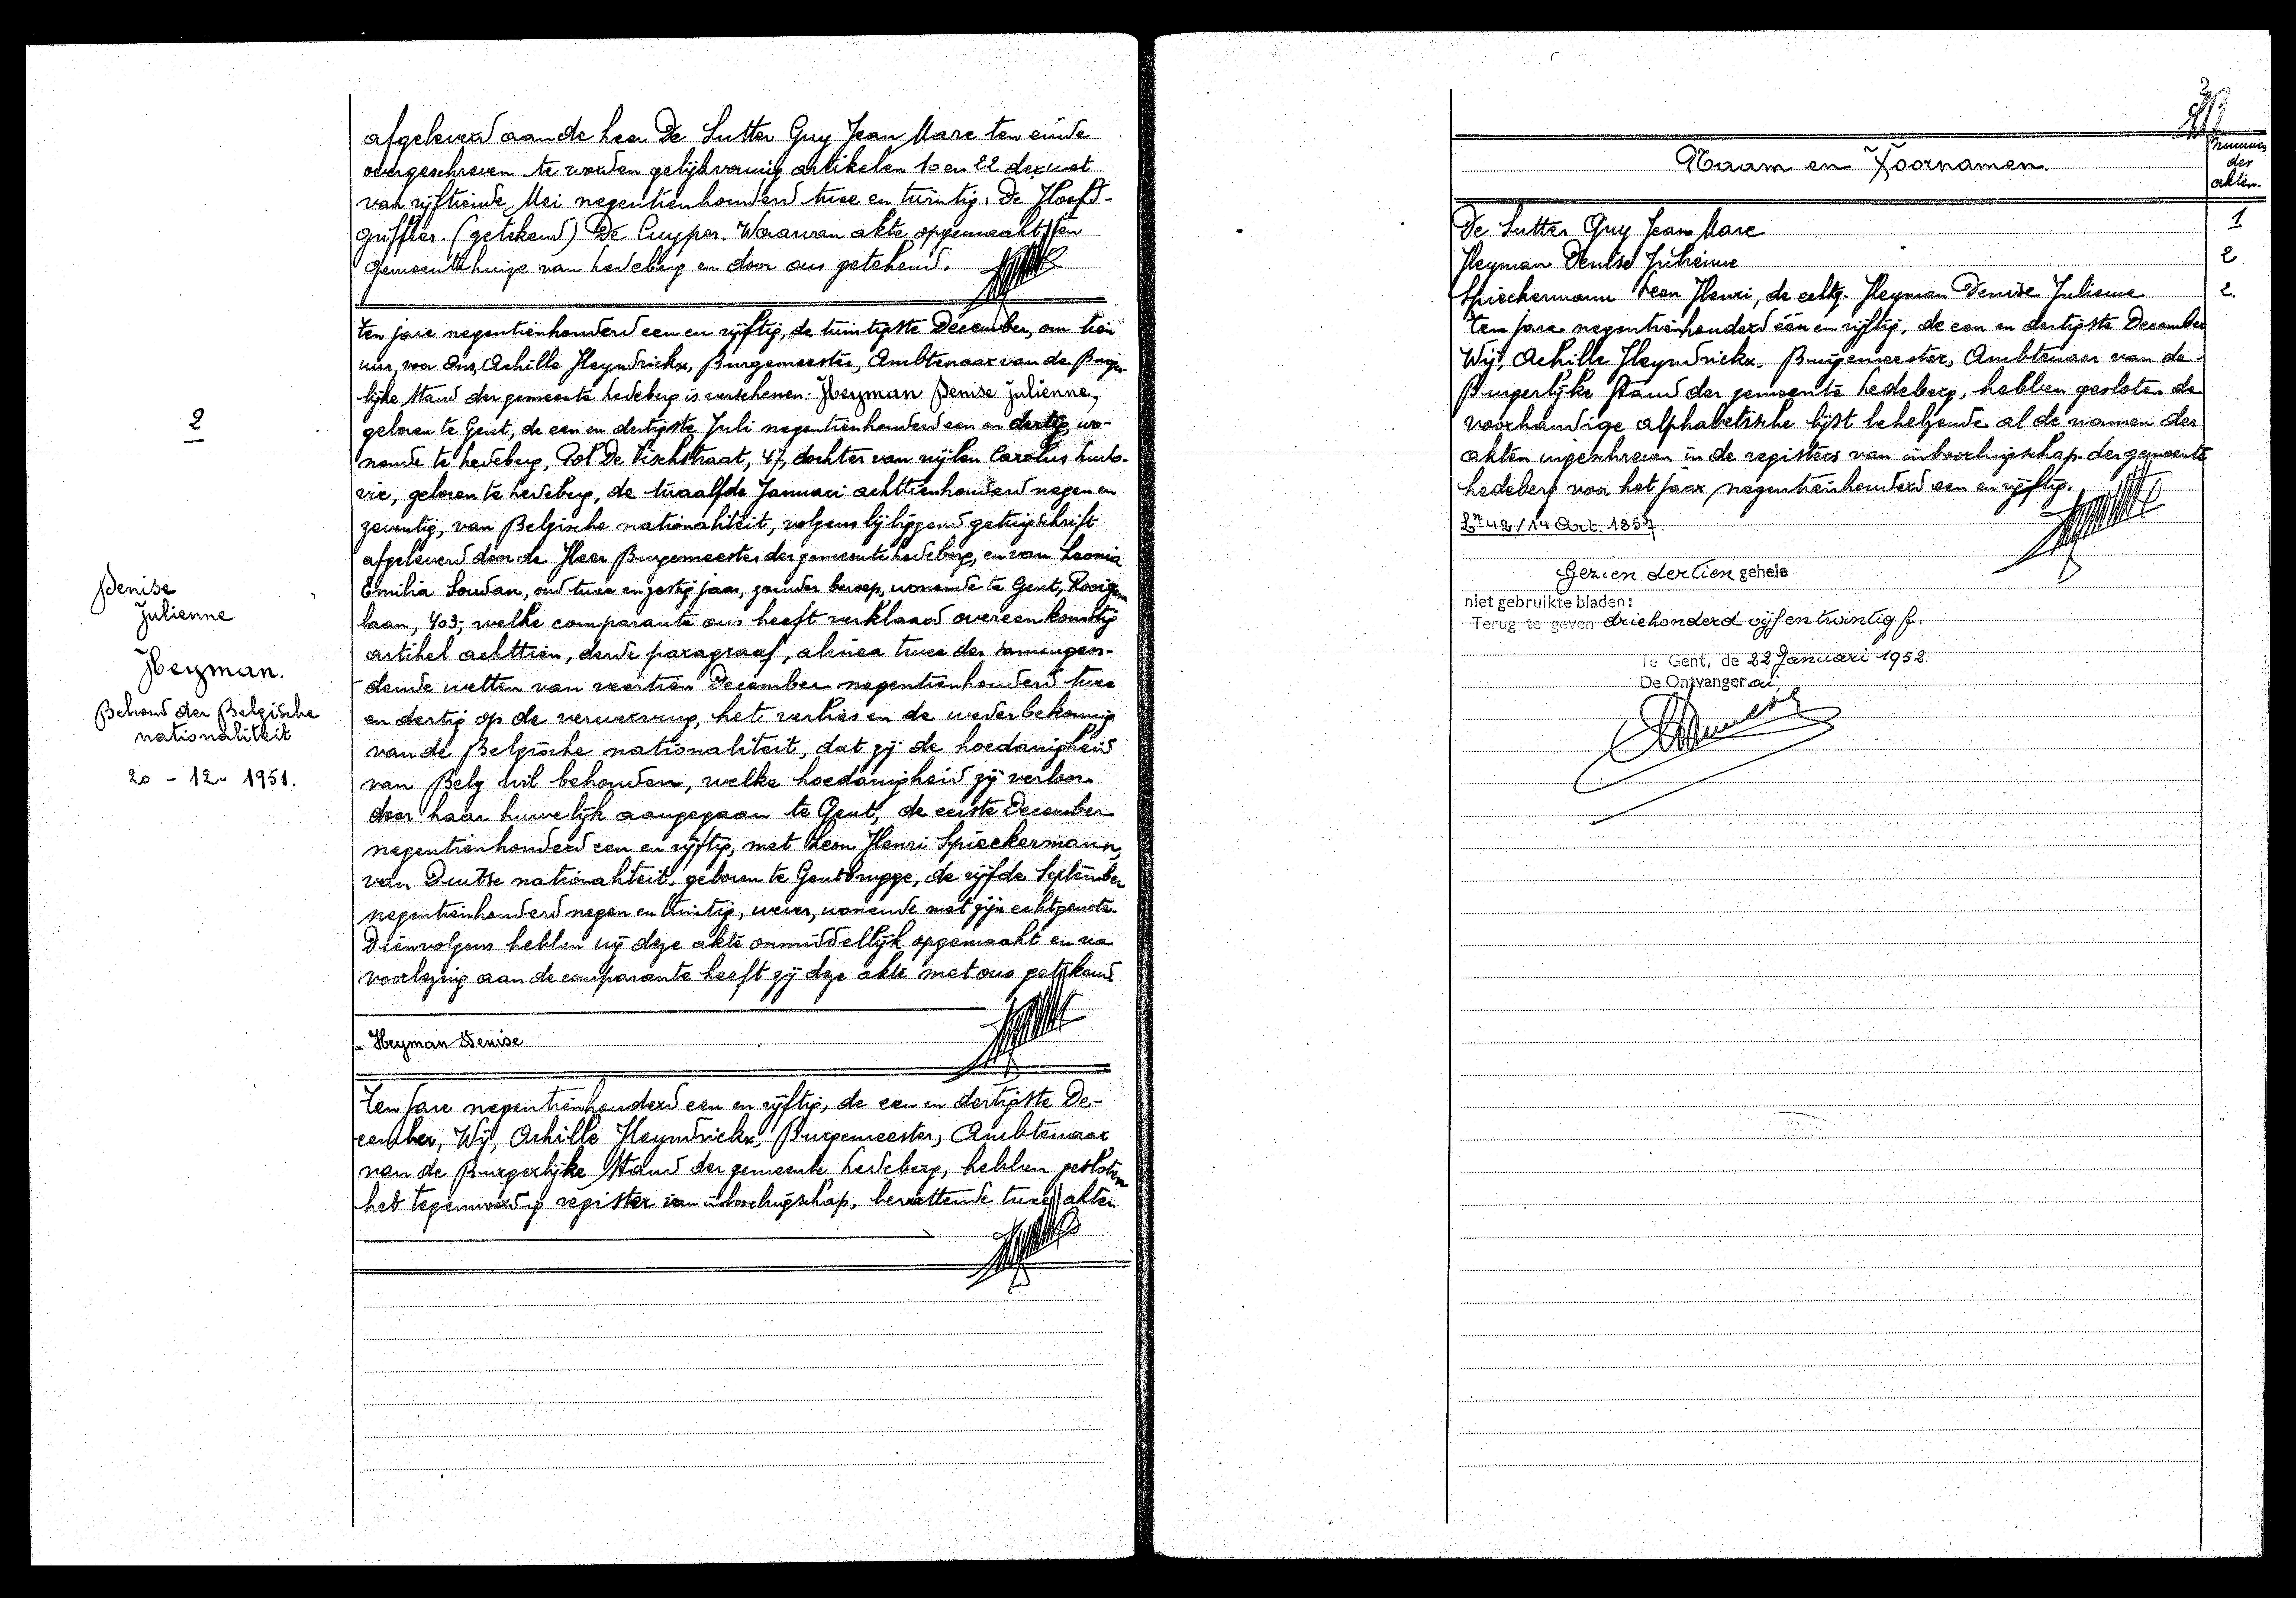 afgeleverd aan de heer De Sutter Guy Jean Marc ten einde
overgeschreven te worden gelijkvormig artikelen 10 en 22 der wet
van vijftiende Mei negentienhonderd twee en twintig. De Hoofd-
griffier. (getekend) De Cuyper. Waarvan akte opgemaakt ten
Gemeentehuize van Ledeberg en door ons getekend.
2
Denise
Julienne
Heyman.
Behoud der Belgische
nationaliteit
20 - 12 - 1951.
Ten jare negentienhonderd een en vijftig, de twintigste December, om tien
uur, voor Ons, Achille Heyndrickx, Burgemeester, Ambtenaar van de Burger-
lijke Stand der gemeente Ledeberg is verschenen: Heyman Denise Julienne,
geboren te Gent, de een en dertigste Juli negentienhonderd een en dertig, wo-
nende te Ledeberg, Pol De Vischstraat, 47, dochter van wijlen Carolus Ludo-
vic, geboren te Ledeberg, de twaalfde Januari achttienhonderd negen en
zeventig, van Belgische nationaliteit, volgens bijliggend getuigschrift
afgeleverd door de Heer Burgemeester der gemeente Ledeberg, en van Leonia
Emilia Soudan, oud twee en zestig jaar, zonder beroep, wonende te Gent, Rooigem
laan, 403; welke comparante ons heeft verklaard overeenkomstig
artikel achttien, derde paragraaf, alinea twee der samengeor-
dende wetten van veertien December negentienhonderd twee
en dertig op de verwerving, het verlies en de wederbekoming
van de Belgische nationaliteit, dat zij de hoedanigheid
van Belg wil behouden, welke hoedanigheid zij verloor
door haar huwelijk aangegaan te Gent, de eerste December
negentienhonderd een en vijftig, met Leon Henri Spieckermann,
van Duitse nationaliteit, geboren te Gentbrugge, de vijfde September
negentienhonderd negen en twintig, wever, wonende met zijn echtgenote.
Dienvolgens hebben wij deze akte onmiddellijk opgemaakt en na
voorlezing aan de comparante heeft zij deze akte met ons getekend
- Heyman Denise
Ten jare negentienhonderd een en vijftig, de een en dertigste De-
cember, Wij, Achille Heyndrickx, Burgemeester, Ambtenaar
van de Burgerlijke Stand der gemeente Ledeberg, hebben gesloten
het tegenwoordig register van inboorlingschap, bevattende twee akten
2
Naam en Voornamen.
Nummer
der
akten.
De Sutter Guy Jean Marc 1
Heyman Denise Julienne 2
Spieckermann Leon Henri, de echtg. Heyman Denise Julienne 2.
Ten jare negentienhonderd één en vijftig, de een en dertigste December
Wij, Achille Heyndrickx, Burgemeester, Ambtenaar van de
Burgerlijke Stand der gemeente Ledeberg, hebben gesloten de
voorhandige alphabetische lijst behelzende al de namen der
akten ingeschreven in de registers van inboorlingschap der gemeente
Ledeberg voor het jaar negentienhonderd een en vijftig.
42/14 Art. 1857.
Gezien dertien gehele
niet gebruikte bladen:
Terug te geven driehonderd vijf en twintig f.
Te Gent, de 22 Januari 1952.
De Ontvanger ai,